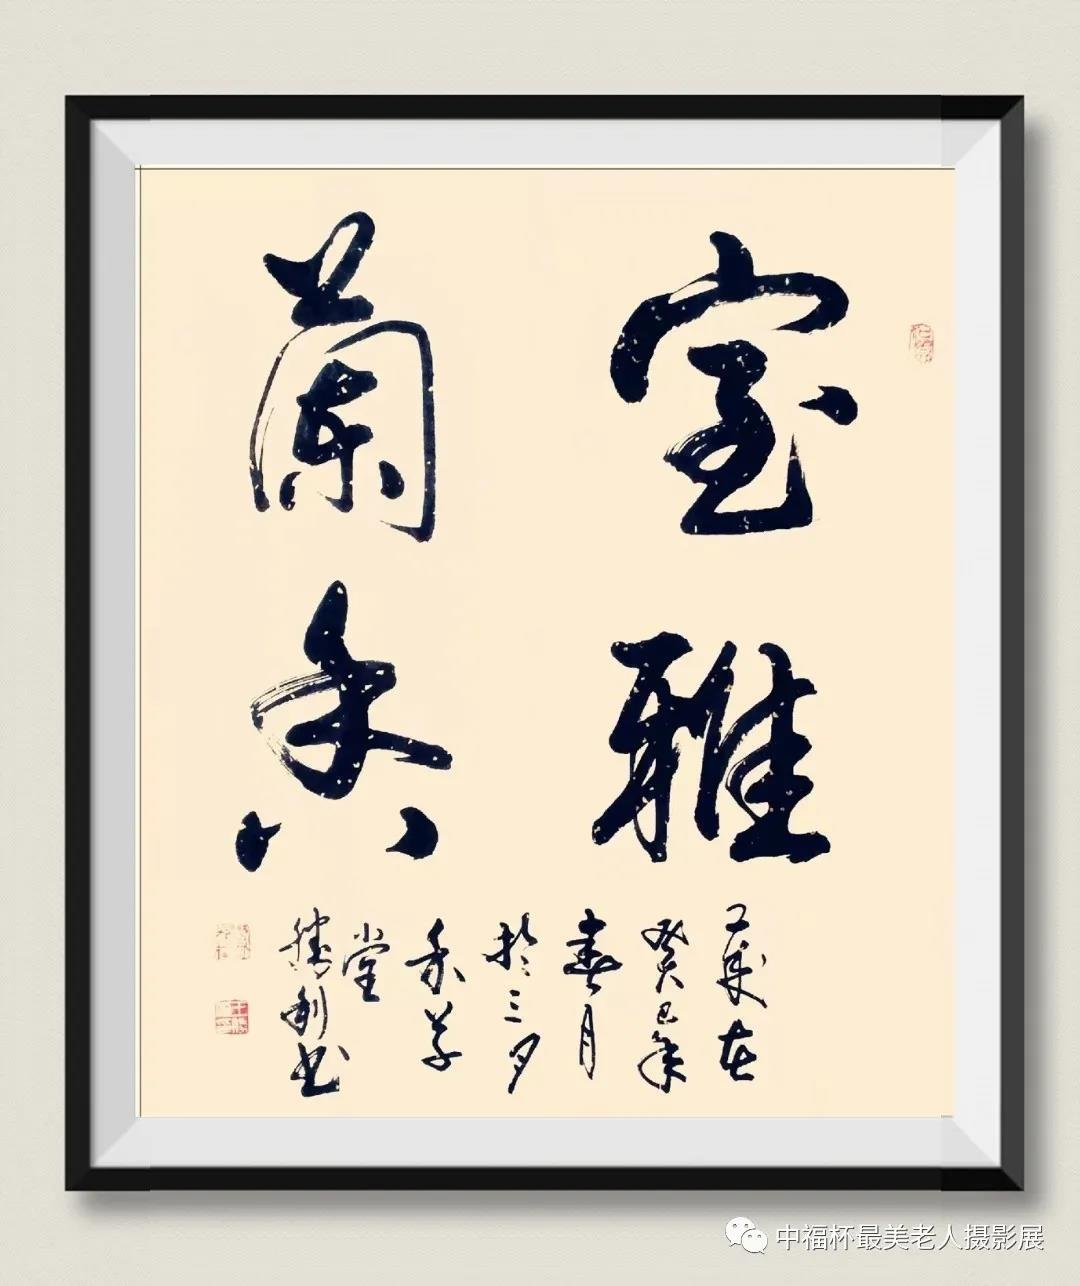 室雅
蘭香
歲在
癸巳年
春月
於三夕
禾草
堂
勝利书
中福杯最美老人摄影展